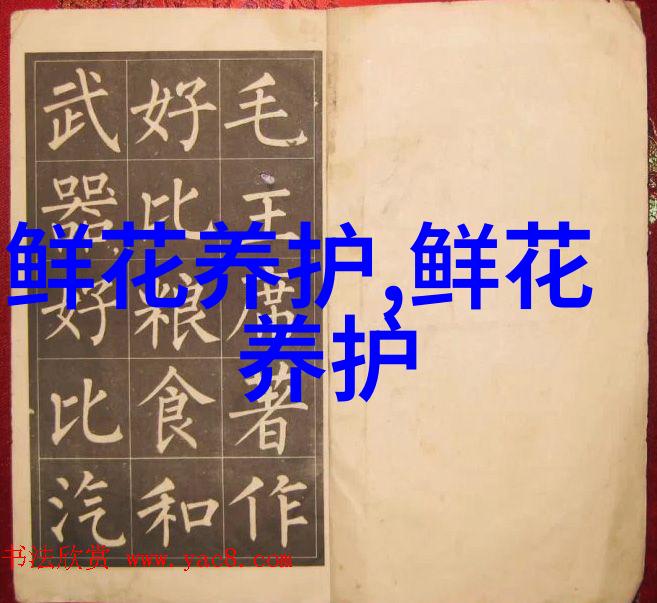 毛主席著作
好比粮食和
武器好比汽
鲜花养护,鲜花
养护
书法欣赏 www.yac8.com